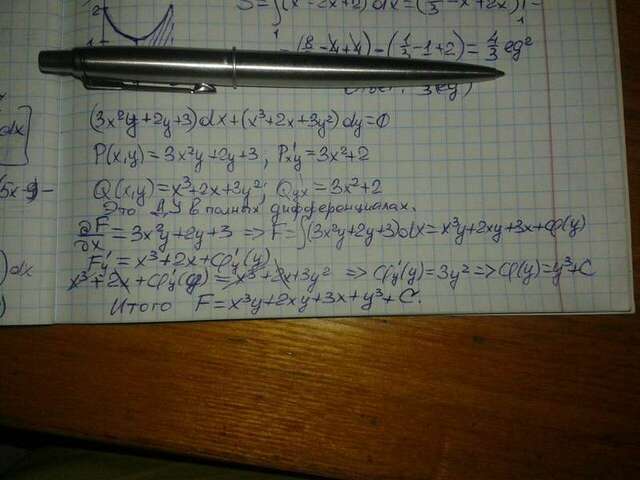 S=∫(x²-2x+2)dx=(x³/3-x²+2x)|=
1
1
1
=(8/3-4+4)-(1/3-1+2)=4/3 ед²
dx]
(3x²y+2y+3)dx+(x³+2x+3y²)dy=0
P(x,y)=3x²y+2y+3, P'xy=3x²+2
(5x-9)-
Q(x,y)=x³+2x+3y²; Q'yx=3x²+2
Это ДУ в полных дифференциалах.
∂F/∂x=3x²y+2y+3 ⇒ F=∫(3x²y+2y+3)dx=x³y+2xy+3x+φ(y)
)dx
F'y=x³+2x+φ'y(y)
x³+2x+φ'y(y)=x³+2x+3y² ⇒ φ'y(y)=3y² ⇒ φ(y)=y³+C
Итого F=x³y+2xy+3x+y³+C.